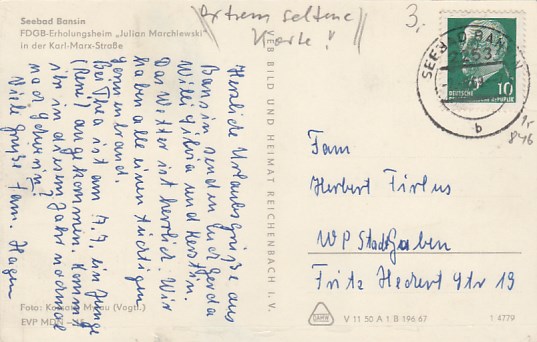 Seebad Bansin
FDGB-Erholungsheim „Julian Marchlewski"
in der Karl-Marx-Straße
Extrem seltene
Karte!
3,-
Herzliche Urlaubsgrüße aus
Bansin senden Euch Gerda
Willi Silvia und Kerstin.
Das Wetter ist herrlich. Wir
haben alle einen tüchtigen
Sonnenbrand.
Bei Thea ist am 7.7. ein Junge
(René) angekommen. Kommt
ihr in diesem Jahr nochmal
nach
Viele Grüße Fam. Hagen
VEB BILD UND HEIMAT REICHENBACH I. V.
SEEBAD BANSIN
2253
b
DEUTSCHE DEMOKRATISCHE REPUBLIK
10
846
Fam
Herbert Firlus
WP Stadt Guben
Fritz Heckert Str 19
Foto: Mylau (Vogtl.)
EVP MDN
V 11 50 A 1 B 196/67
1 4779